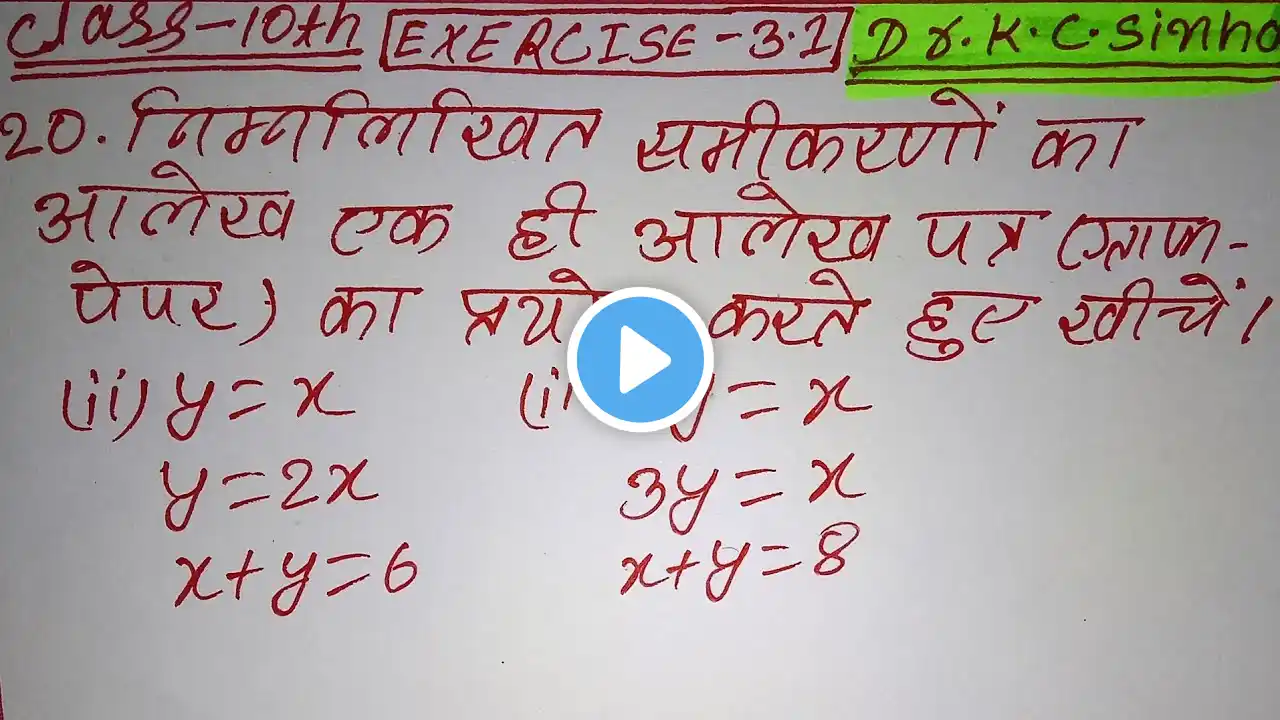 Class-10th EXERCISE-3.1 Dr.K.C.Sinha
20. निम्नलिखित समीकरणों का
आलेख एक ही आलेख पत्र (ग्राफ-
पेपर) का करते हुए खीचें।
(ii) y=x y=x
y=2x 3y=x
x+y=6 x+y=8